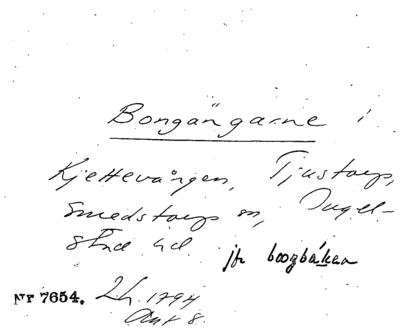 Bongängarne i
Kjettevången, Tjustorp,
Smedstorps sn, Ingel-
stad hd. jfr boogbåken
Nr 7654. Lh. 1794
Akt 8.